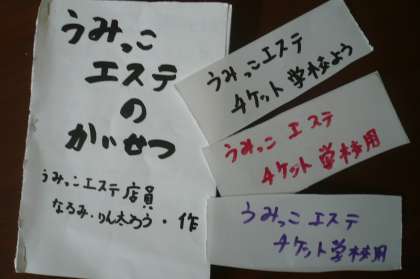 うみっこ
エステ
の
かいせつ
うみっこエステ店員
なるみ・りん太ろう・作
うみっこエステ
チケット学校よう
うみっこエステ
チケット学校用
うみっこエステ
チケット学校用